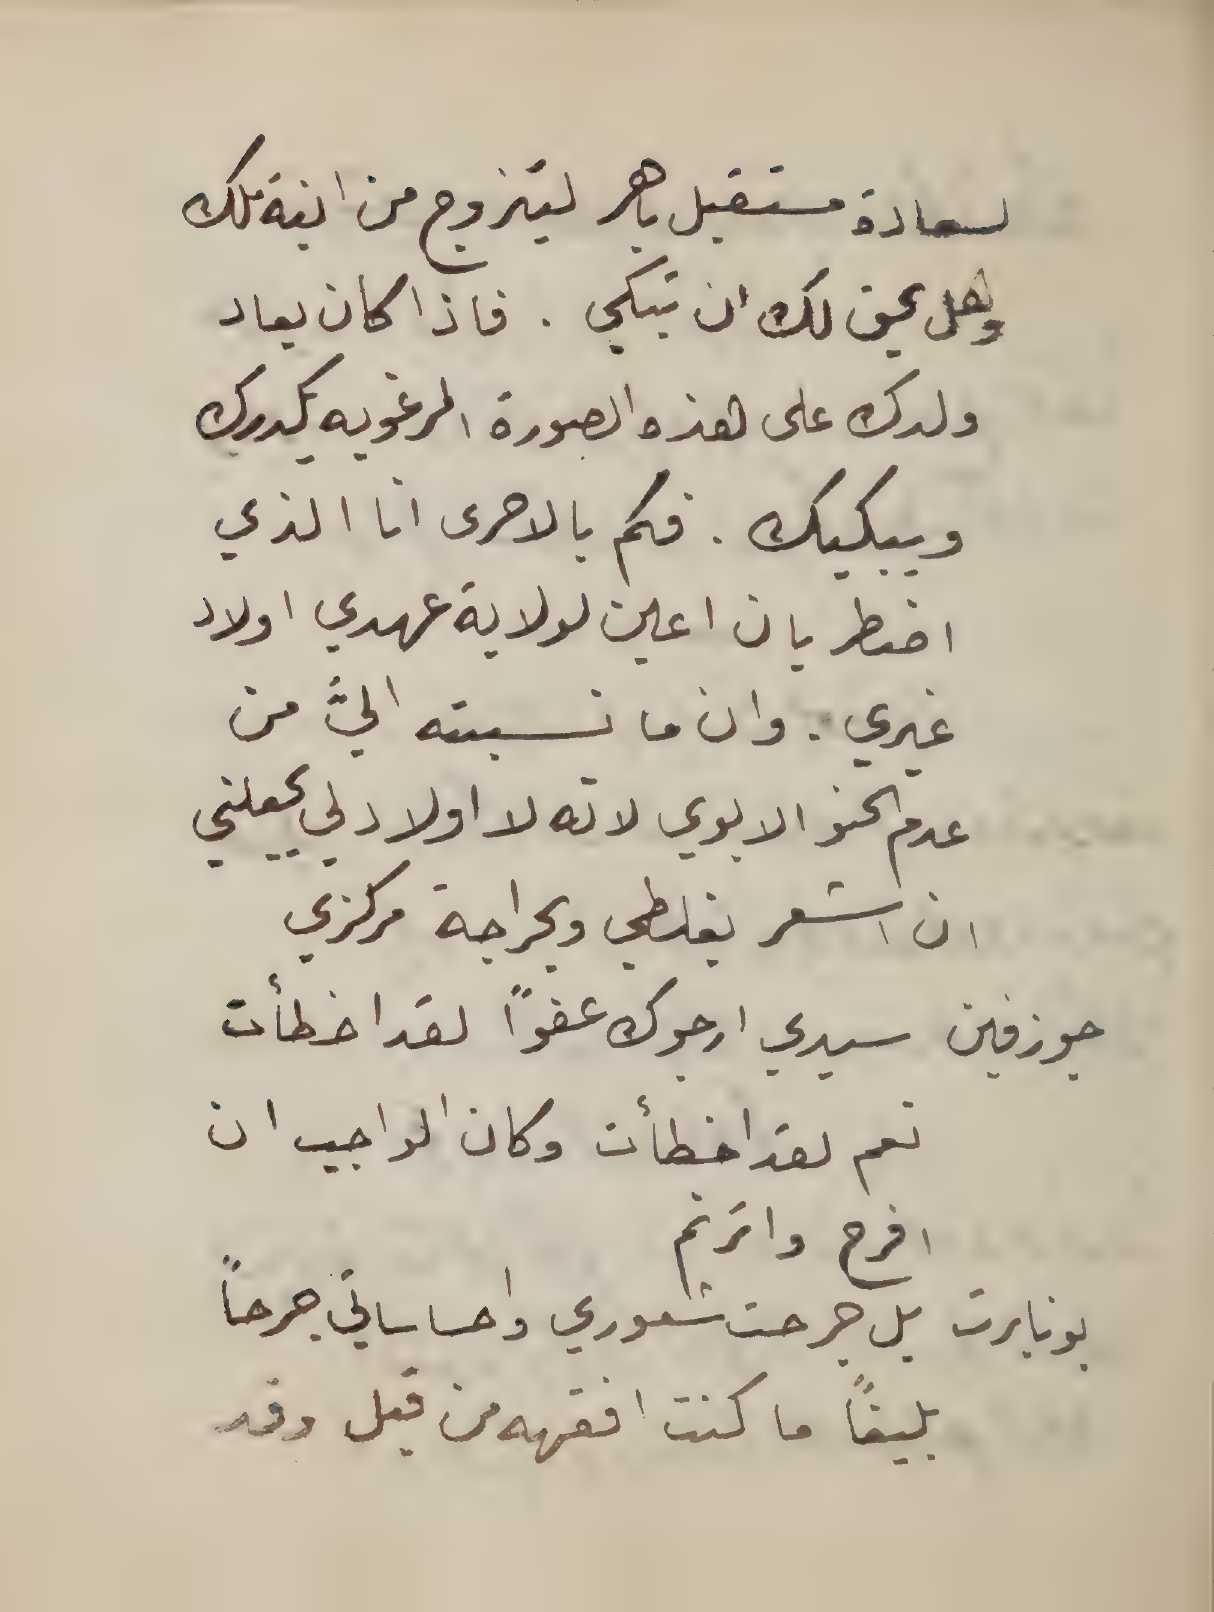 لسعادة مستقبل باهر ليتزوج من ابنة ملك
وهل يحق لك ان تبكي . فاذا كان بعاد
ولدك على هذه الصورة المرغوبه يكدرك
ويبكيك . فكم بالاحرى انا الذي
اضطر بان اعين لولاية عهدي اولاد
غيري . وان ما نسبته اليَّ من
عدم الحنو الابوي لانه لا اولاد لي يجعلني
ان اشعر بغلطي وبحراجة مركزي
جوزفين سيدي ارجوك عفواً لقد اخطأت
نعم لقد اخطأت وكان الواجب ان
افرح واترنم
بونابرت بل جرحت شعوري واحساساتي جرحاً
بليغاً ما كنت افقهه من قبل وقد